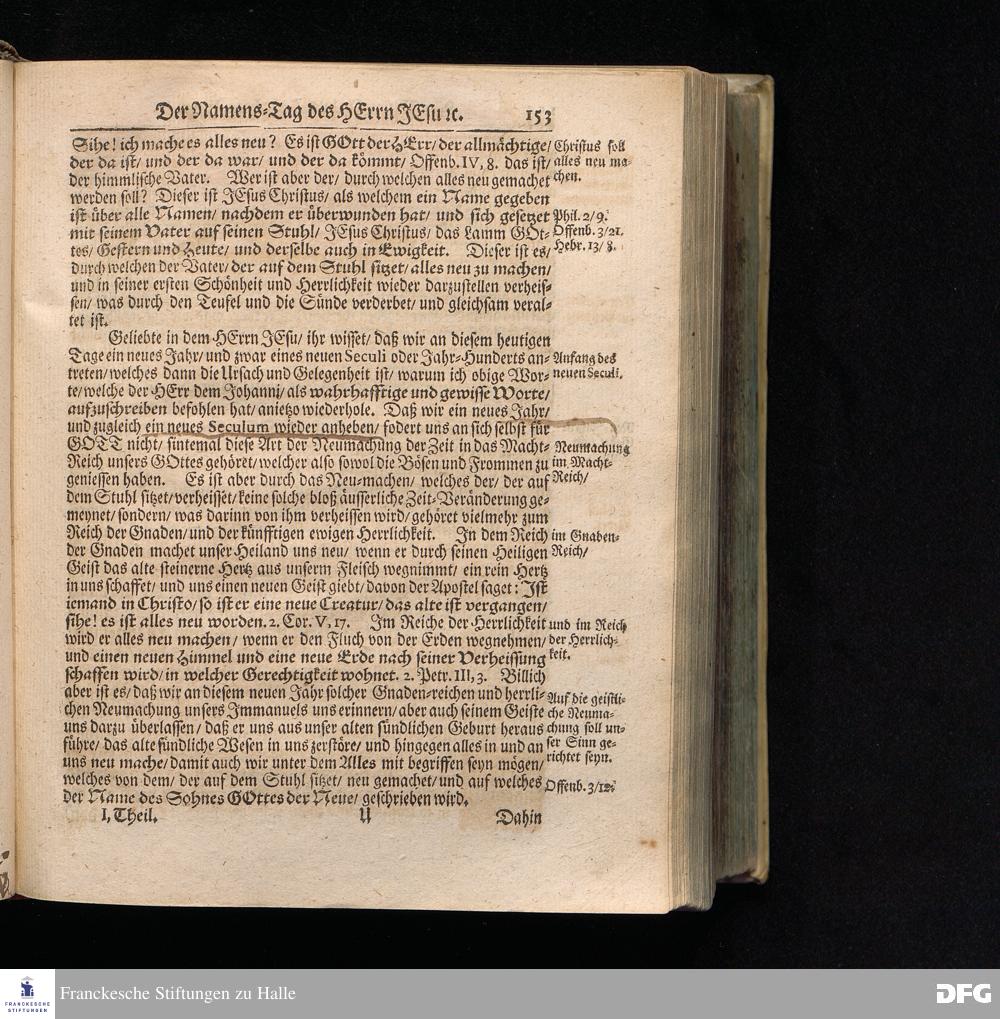 Der Namens-Tag des HErrn JEsu ꝛc. 153
Sihe! ich mache es alles neu? Es ist GOtt der HErr/ der allmächtige/
der da ist/ und der da war/ und der da kömmt/ Offenb. IV, 8. das ist/
der himmlische Vater. Wer ist aber der/ durch welchen alles neu gemachet
werden soll? Dieser ist JEsus Christus/ als welchem ein Name gegeben
ist über alle Namen/ nachdem er überwunden hat/ und sich gesetzet
mit seinem Vater auf seinen Stuhl/ JEsus Christus/ das Lamm GOt-
tes/ Gestern und Heute/ und derselbe auch in Ewigkeit. Dieser ist es/
durch welchen der Vater/ der auf dem Stuhl sitzet/ alles neu zu machen/
und in seiner ersten Schönheit und Herrlichkeit wieder darzustellen verheis-
sen/ was durch den Teufel und die Sünde verderbet/ und gleichsam veral-
tet ist.
Christus soll
alles neu ma-
chen.
Phil. 2/9.
Offenb. 3/21.
Hebr. 13/8.
Geliebte in dem HErrn JEsu/ ihr wisset/ daß wir an diesem heutigen
Tage ein neues Jahr/ und zwar eines neuen Seculi oder Jahr-Hunderts an-
treten/ welches dann die Ursach und Gelegenheit ist/ warum ich obige Wor-
te/ welche der HErr dem Johanni/ als wahrhafftige und gewisse Worte/
aufzuschreiben befohlen hat/ anietzo wiederhole. Daß wir ein neues Jahr/
und zugleich ein neues Seculum wieder anheben/ fodert uns an sich selbst für
GOTT nicht/ sintemal diese Art der Neumachung der Zeit in das Macht-
Reich unsers GOttes gehöret/ welcher also sowol die Bösen und Frommen zu
geniessen haben. Es ist aber durch das Neu-machen/ welches der/ der auf
dem Stuhl sitzet/ verheisset/ keine solche bloß äusserliche Zeit-Veränderung ge-
meynet/ sondern/ was darinn von ihm verheissen wird/ gehöret vielmehr zum
Reich der Gnaden/ und der künfftigen ewigen Herrlichkeit. In dem Reich
der Gnaden machet unser Heiland uns neu/ wenn er durch seinen Heiligen
Geist das alte steinerne Hertz aus unserm Fleisch wegnimmt/ ein rein Hertz
in uns schaffet/ und uns einen neuen Geist giebt/ davon der Apostel saget: Ist
iemand in Christo/ so ist er eine neue Creatur/ das alte ist vergangen/
sihe! es ist alles neu worden. 2. Cor. V, 17. Im Reiche der Herrlichkeit
wird er alles neu machen/ wenn er den Fluch von der Erden wegnehmen/
und einen neuen Himmel und eine neue Erde nach seiner Verheissung
schaffen wird/ in welcher Gerechtigkeit wohnet. 2. Petr. III, 3. Billich
aber ist es/ daß wir an diesem neuen Jahr solcher Gnaden-reichen und herrli-
chen Neumachung unsers Immanuels uns erinnern/ aber auch seinem Geiste
uns darzu überlassen/ daß er uns aus unser alten sündlichen Geburt heraus
führe/ das alte sündliche Wesen in uns zerstöre/ und hingegen alles in und an
uns neu mache/ damit auch wir unter dem Alles mit begriffen seyn mögen/
welches von dem/ der auf dem Stuhl sitzet/ neu gemachet/ und auf welches
der Name des Sohnes GOttes der Neue/ geschrieben wird.
Anfang des
neuen Seculi.
Neumachung
im Macht-
Reich/
im Gnaden-
Reich/
und im Reich
der Herrlich-
keit.
Auf die geistli-
che Neuma-
chung soll un-
ser Sinn ge-
richtet seyn.
Offenb. 3/12.
I. Theil. U Dahin
FRANCKESCHE
STIFTUNGEN
Franckesche Stiftungen zu Halle
DFG